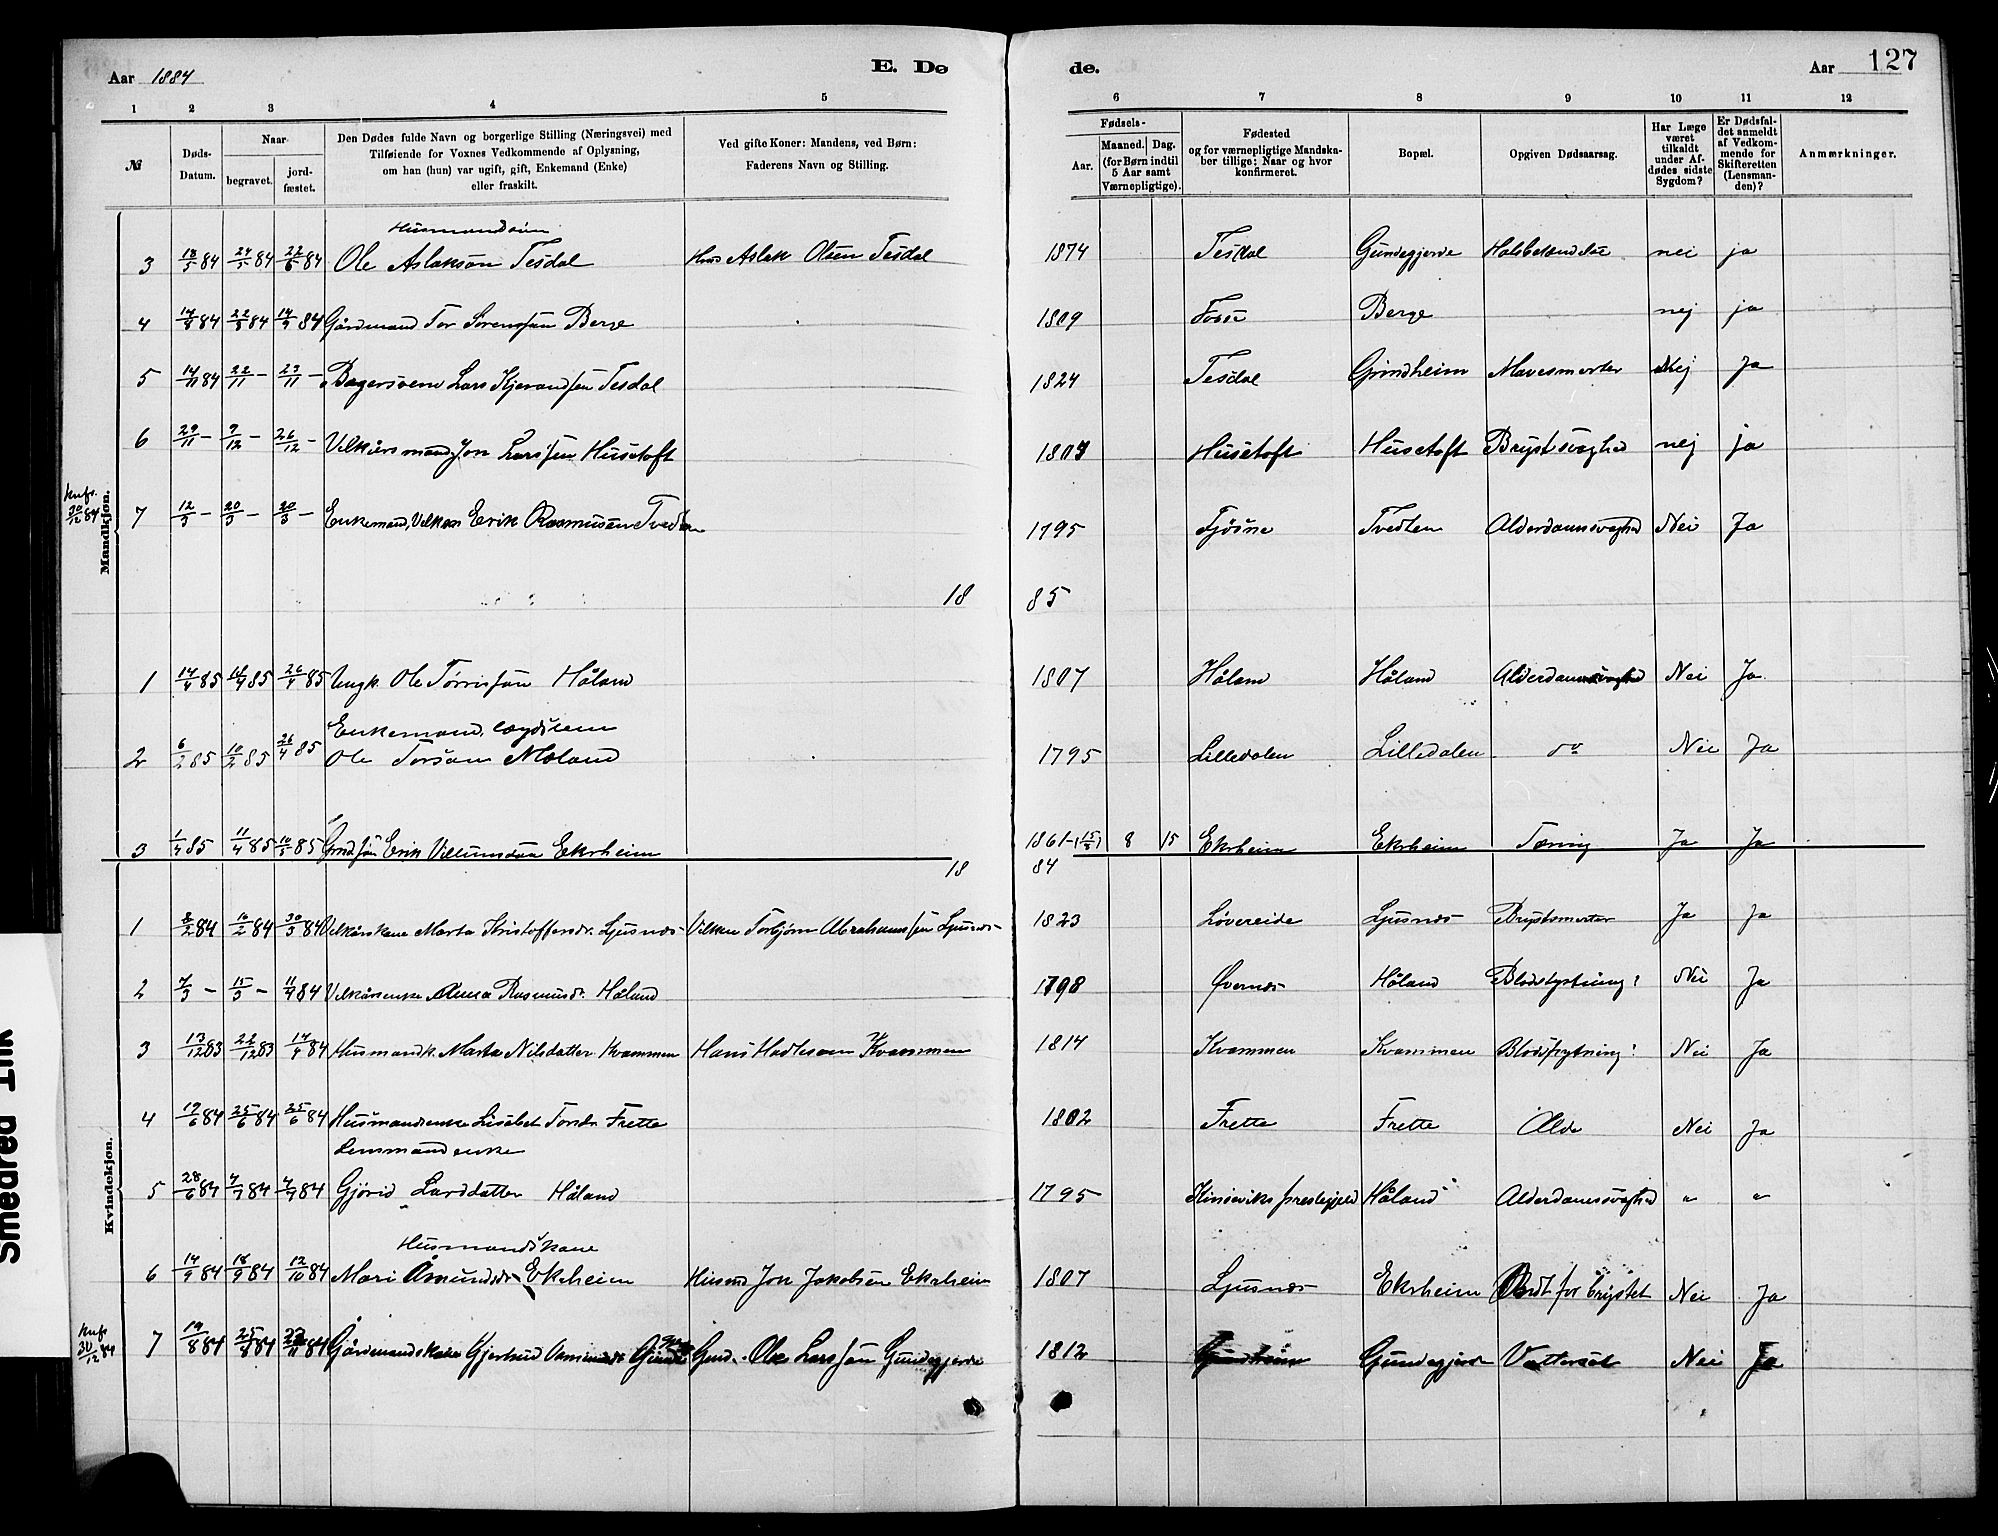 Aar 1884 E. Dø de. Aar 127
1 2 3 4 5 6 7 8 9 10 11 12
№ Døds-Datum. Naar begravet. jordfæstet. Den Dødes fulde Navn og borgerlige Stilling (Næringsvei) med Tilføiende for Voxnes Vedkommende af Oplysning, om han (hun) var ugift, gift, Enkemand (Enke) eller fraskilt. Ved gifte Koner: Mandens, ved Børn: Faderens Navn og Stilling. Fødsels- Aar. Maaned. Dag. (for Børn indtil 5 Aar samt Værnepligtige). Fødested og for værnepligtige Mandskaber tillige: Naar og hvor konfirmeret. Bopæl. Opgiven Dødsaarsag. Har Læge været tilkaldt under Afdødes sidste Sygdom? Er Dødsfaldet anmeldt af Vedkommende for Skifteretten (Lensmanden)? Anmærkninger.
Mandkjøn.
Husmandssøn
3 18/5 84 24/5 84 22/6 84 Ole Aslaksøn Tesdal Aslak Olsen Tesdal 1874 Tesdal Gundegjerde nei ja
4 14/8 84 22/8 84 14/9 84 Gårdmand Tor Sørenssøn Berge 1809 Fosse Berge nej ja
5 14/11 84 22/11 – 23/11 – Lars Kjerandsen Tesdal 1824 Tesdal Grindheim Mavesmerter Nej Ja
6 29/11 – 9/12 – 26/12 – Vilkårsmand Jon Larssen Husetoft 1807 Husetoft Husetoft Brystsvaghed nej ja
30/12 84 7 12/3 – 20/3 – 20/3 – Enkemand, Erik Rasmusen Tvedten 1795 Fjøsne Tvedten Alderdomssvaghed Nei Ja
18 85
1 14/4 85 18/4 85 26/4 85 Ungk. Ole Tørrissøn Håland 1807 Håland Håland Alderdomssvaghed Nei Ja
Enkemand, lægdslem
2 6/2 85 10/2 85 26/4 85 Ole Torsøn Mæland 1795 Lilledalen Lilledalen do Nei Ja
3 1/4 85 11/4 85 10/5 85 Erik Villumsøn Ekrheim 1861 – (15/8) 8 15 Ekrheim Ekrheim Tæring Ja Ja
18 84
Kvindekjøn.
1 8/2 84 16/2 84 30/3 84 Vilkårskone Marta Kristoffersdr. Ljusnes Torbjørn Abrahamssen Ljusnes 1823 Løvereide Ljusnes Brystsmerter Ja Ja
2 7/3 – 15/3 – 11/4 84 Vilkårsenke Anna Rasmusdr. Håland 1798 Øvernes Håland Nei Ja
3 13/12 83 22/12 83 14/4 84 Husmandsk. Marta Nilsdatter Kvammen Hans Kvammen 1814 Kvammen Kvammen Blodspytning! Nei Ja
4 19/6 84 25/6 84 25/6 84 Husmandsenke Lisabet Tordr. Frette 1802 Frette Frette Alde Nei Ja
Lensmandsenke
5 28/6 84 4/7 84 4/7 84 Gjørid Larsdatter Håland 1795 Kinserviks prestegjeld Håland Alderdomssvaghed " "
Husmandskone
6 14/9 84 18/9 84 12/10 84 Mari Åmundsdr. Ekrheim Husmd Jon Jakobsen Ekrheim 1807 Ljusnes Ekrheim Ondt for brystet Nei Ja
30/12 84 7 19/8 84 25/8 84 84 Gårdmandskone Gjertrud Ole Larssøn Gundegjerde 1812 Gundegjerde Vattersot Nei Ja
Smedred Ink